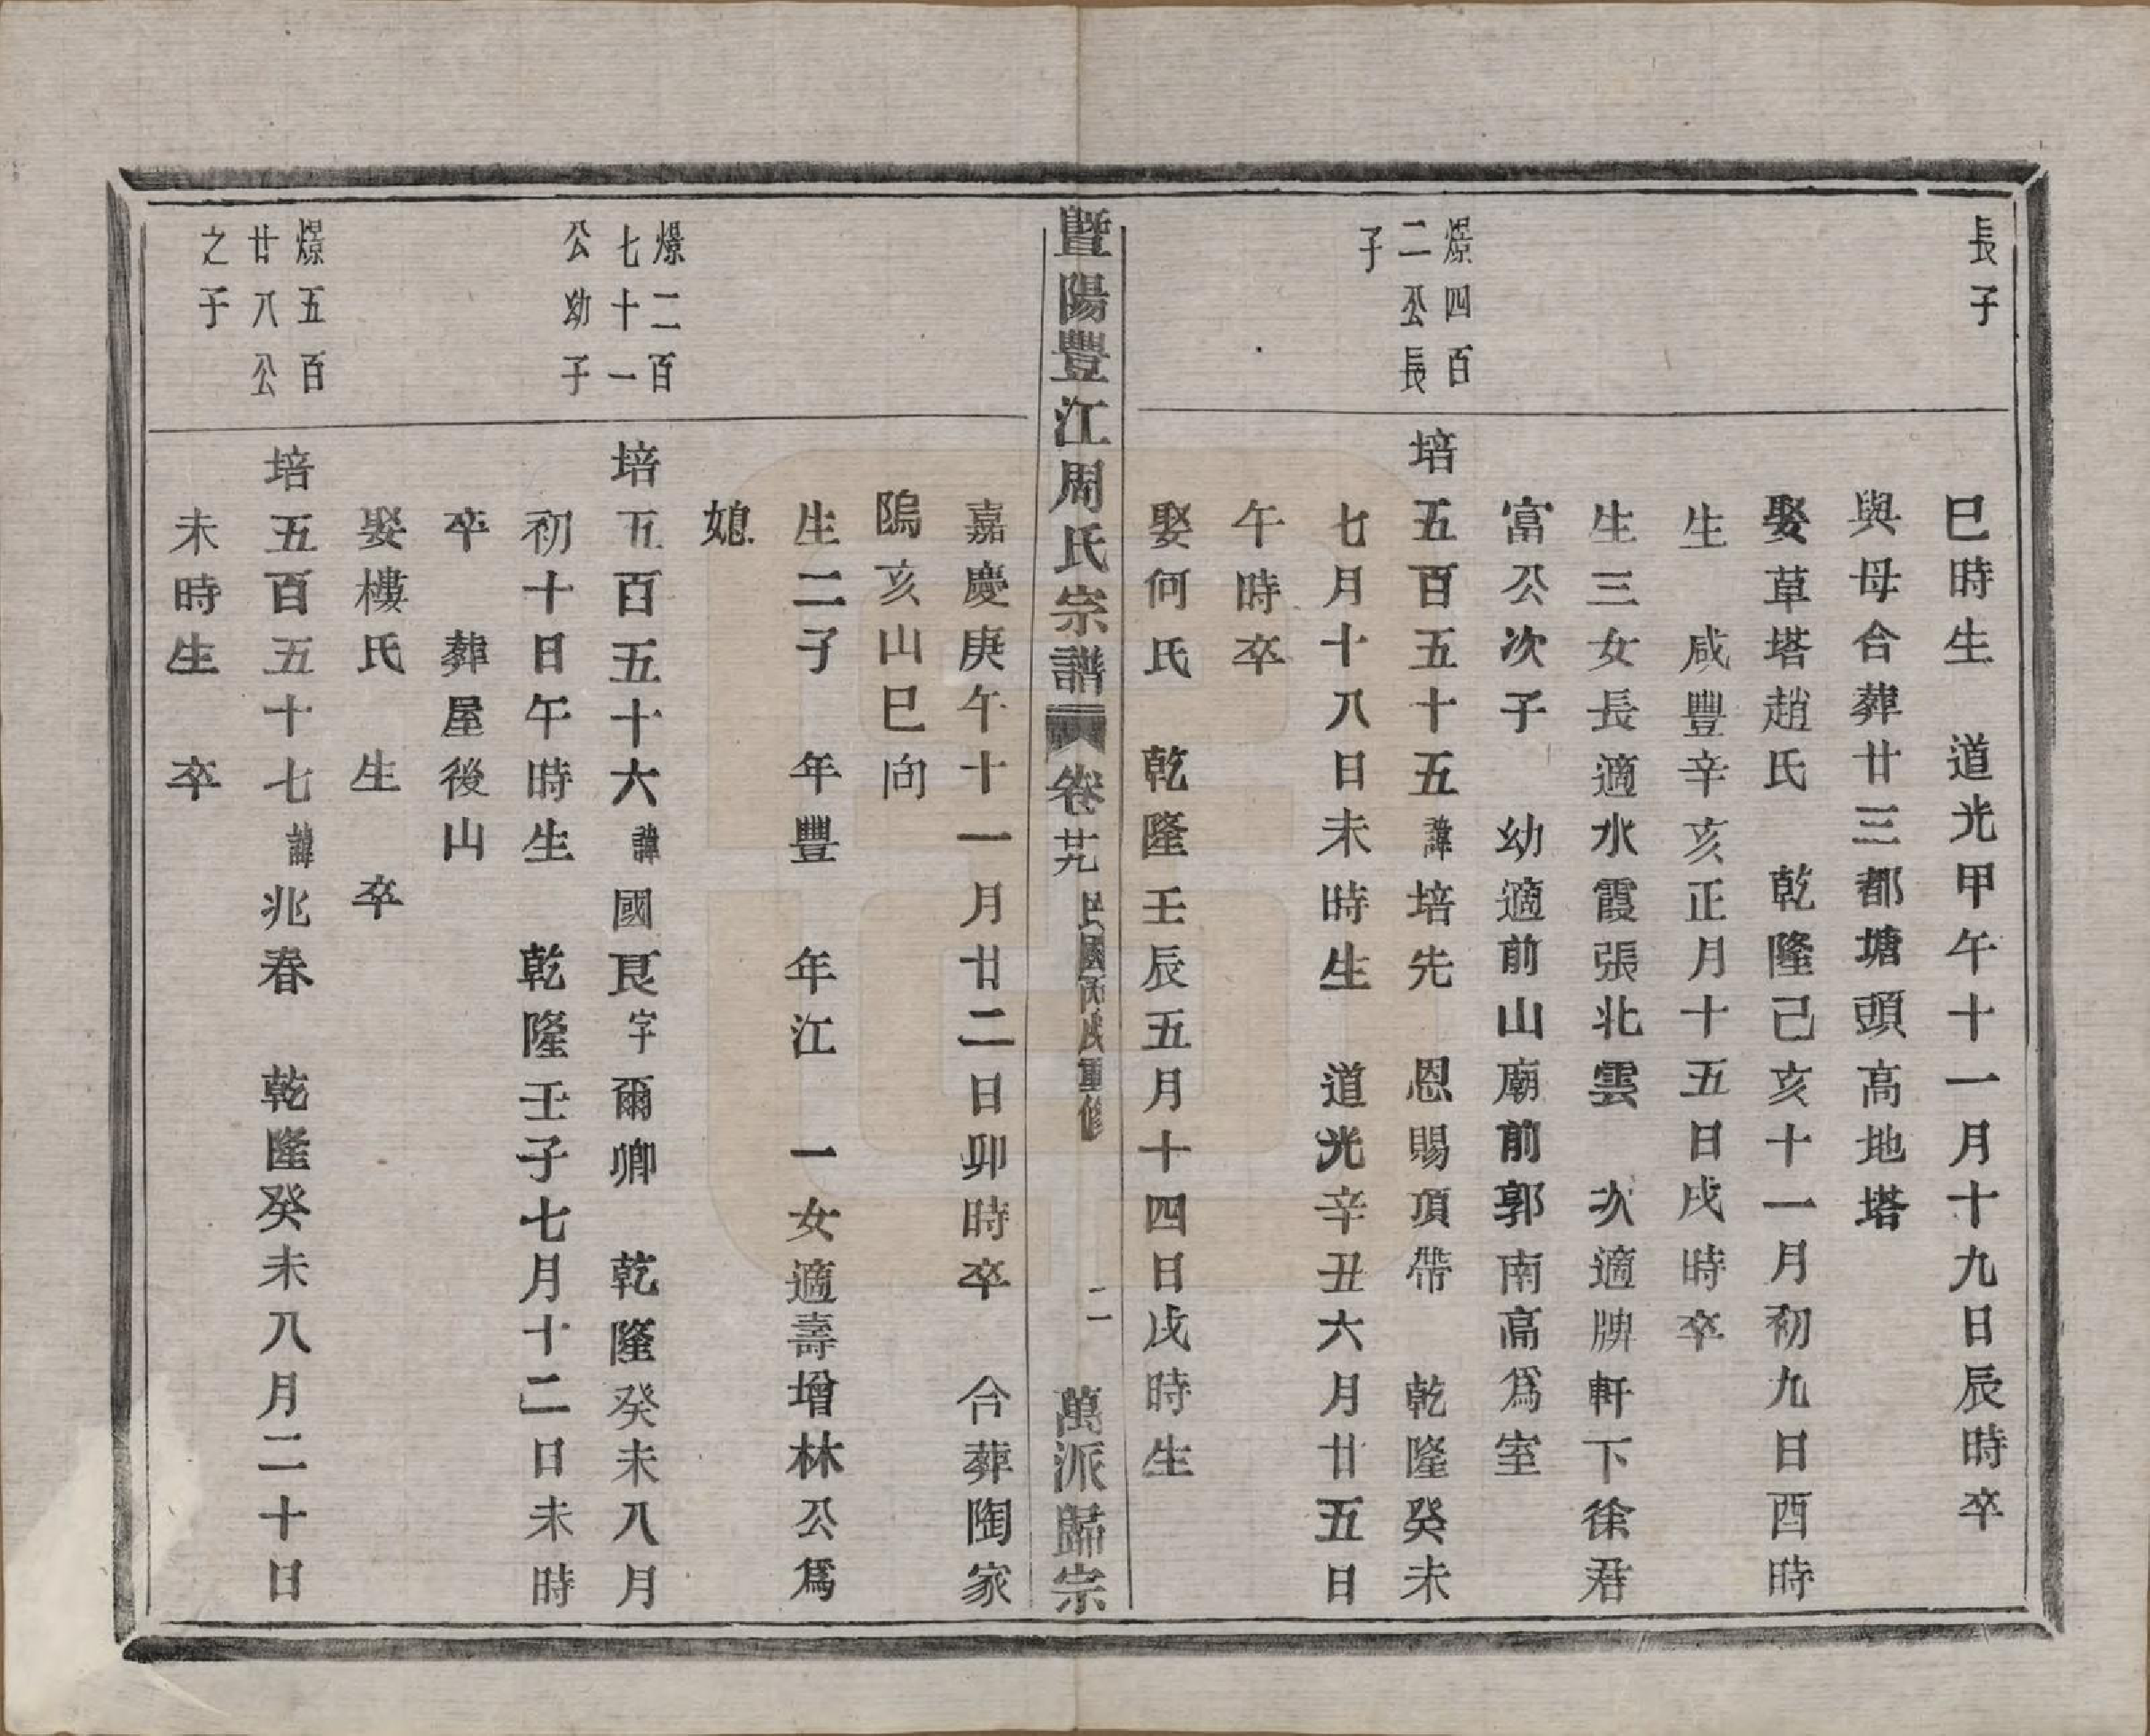 長子
巳時生　道光甲午十一月十九日辰時卒
與母合葬廿三都塘頭高地塔
娶草塔趙氏　乾隆己亥十一月初九日酉時
生　咸豐辛亥正月十五日戌時卒
生三女長適水霞張北雲　次適牌軒下徐君
富公次子　幼適前山廟前郭南高爲室
爆四百
二公長
子
培五百五十五諱培先　恩賜頂帶　乾隆癸未
七月十八日未時生　道光辛丑六月廿五日
午時卒
娶何氏　乾隆壬辰五月十四日戌時生
暨陽豐江周氏宗譜　卷廿九　民國丙戌重修　二　萬派歸宗
嘉慶庚午十一月廿二日卯時卒　合葬陶家
隝亥山巳向
生二子　年豐　年江　一女適壽增林公爲
媳
爆二百
七十一
公幼子
培五百五十六諱國良字爾卿　乾隆癸未八月
初十日午時生　乾隆壬子七月十二日未時
卒　葬屋後山
娶樓氏　生　卒
爆五百
廿八公
之子
培五百五十七諱兆春　乾隆癸未八月二十日
未時生　卒